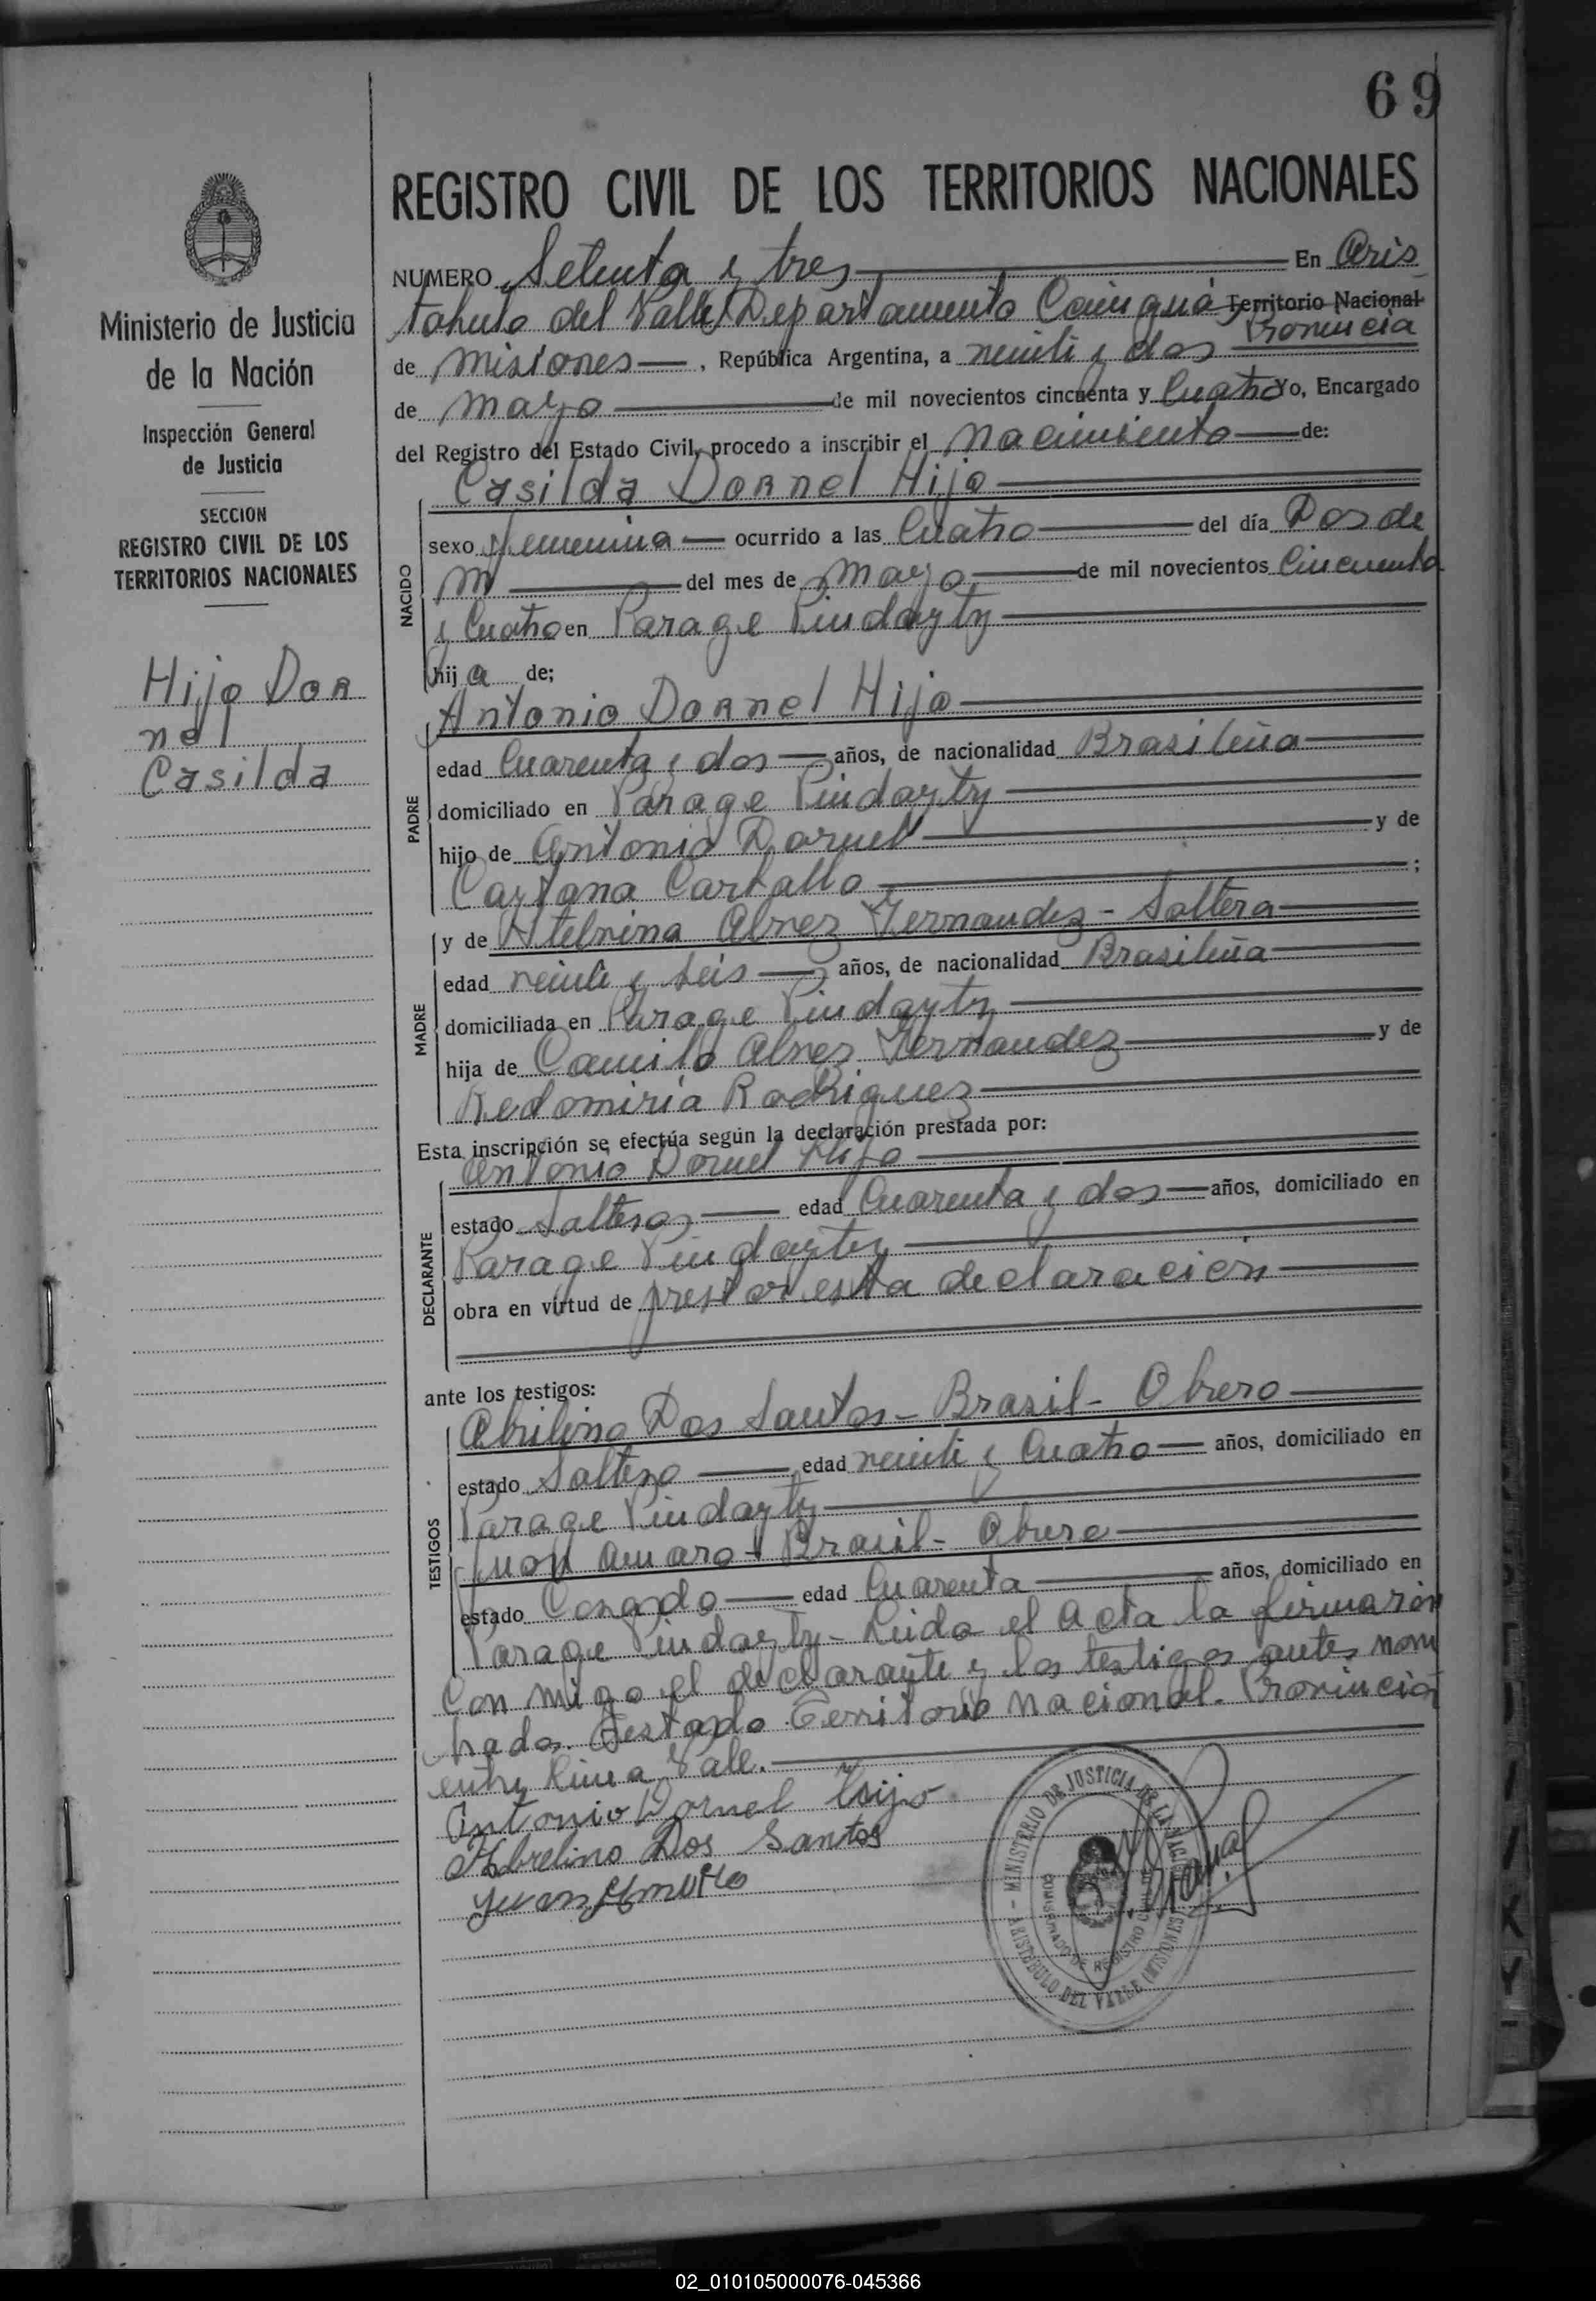 69
REGISTRO CIVIL DE LOS TERRITORIOS NACIONALES
Ministerio de Justicia
de la Nación
Inspección General
de Justicia
SECCION
REGISTRO CIVIL DE LOS
TERRITORIOS NACIONALES
Hijo Dor
nel
Casilda
NUMERO Setenta y tres En Aris
tobulo del Valle Departamento Cainguá Territorio Nacional
Provincia
de Misiones, República Argentina, a veinti y dos
de Mayo de mil novecientos cincuenta y Cuatro Yo, Encargado
del Registro del Estado Civil, procedo a inscribir el Nacimiento de:
NACIDO
Casilda Dornel Hijo
sexo femenina ocurrido a las Cuatro del día Dos de
m del mes de Mayo de mil novecientos Cincuenta
y Cuatro en Parage Pindayty
hija de;
PADRE
Antonio Dornel Hijo
edad Cuarenta y dos años, de nacionalidad Brasileña
domiciliado en Parage Pindayty
hijo de Antonio Dornel y de
Caytana Carballo ;
MADRE
y de Alves Fernandez - Soltera
edad veinti y seis años, de nacionalidad Brasileña
domiciliada en Parage Pindayty
hija de Camilo Alves Fernandez y de
Redomiria Rodriguez
Esta inscripción se efectúa según la declaración prestada por:
DECLARANTE
Antonio Dornel Hijo
estado Soltero edad Cuarenta y dos años, domiciliado en
Parage Pindayty
obra en virtud de prestar esta declaración
ante los testigos:
TESTIGOS
Abrilino Dos Santos - Brasil - Obrero
estado Soltero edad veinti y Cuatro años, domiciliado en
Parage Pindayty
Juan Amaro - Brasil - Obrero
estado Casado edad Cuarenta años, domiciliado en
Parage Pindayty - Leida el Acta la firmarón
Con migo el declarante y los testigos antes nom
brados. Testado Territorio Nacional. Provincia
entre linea Vale.
Antonio Dornel hijo
Abrelino Dos Santos
Juan Amaro
MINISTERIO DE JUSTICIA DE LA NACION
REGISTRO CIVIL
ARISTOBULO DEL VALLE (MISIONES)
02_010105000076-045366